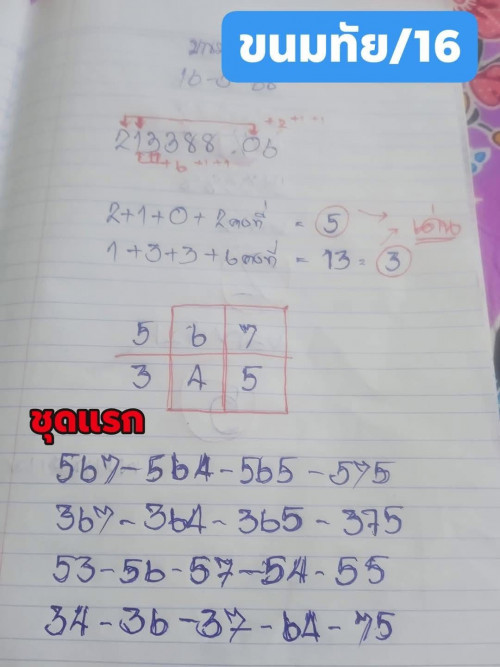 ขนมทัย/16
+2 +1 +1
213388.06
+6 +1 +1
2+1+0+2คงที่ = 5
เด่น
1+3+3+6คงที่ = 13 = 3
5 6 7
3 4 5
ชุดแรก
567-564-565-575
367-364-365-375
53-56-57-54-55
34-36-37-64-75